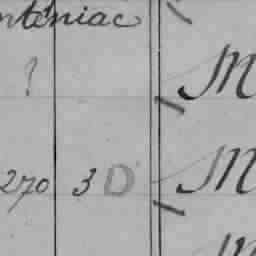 nténiac
? M
270 3 D M
M